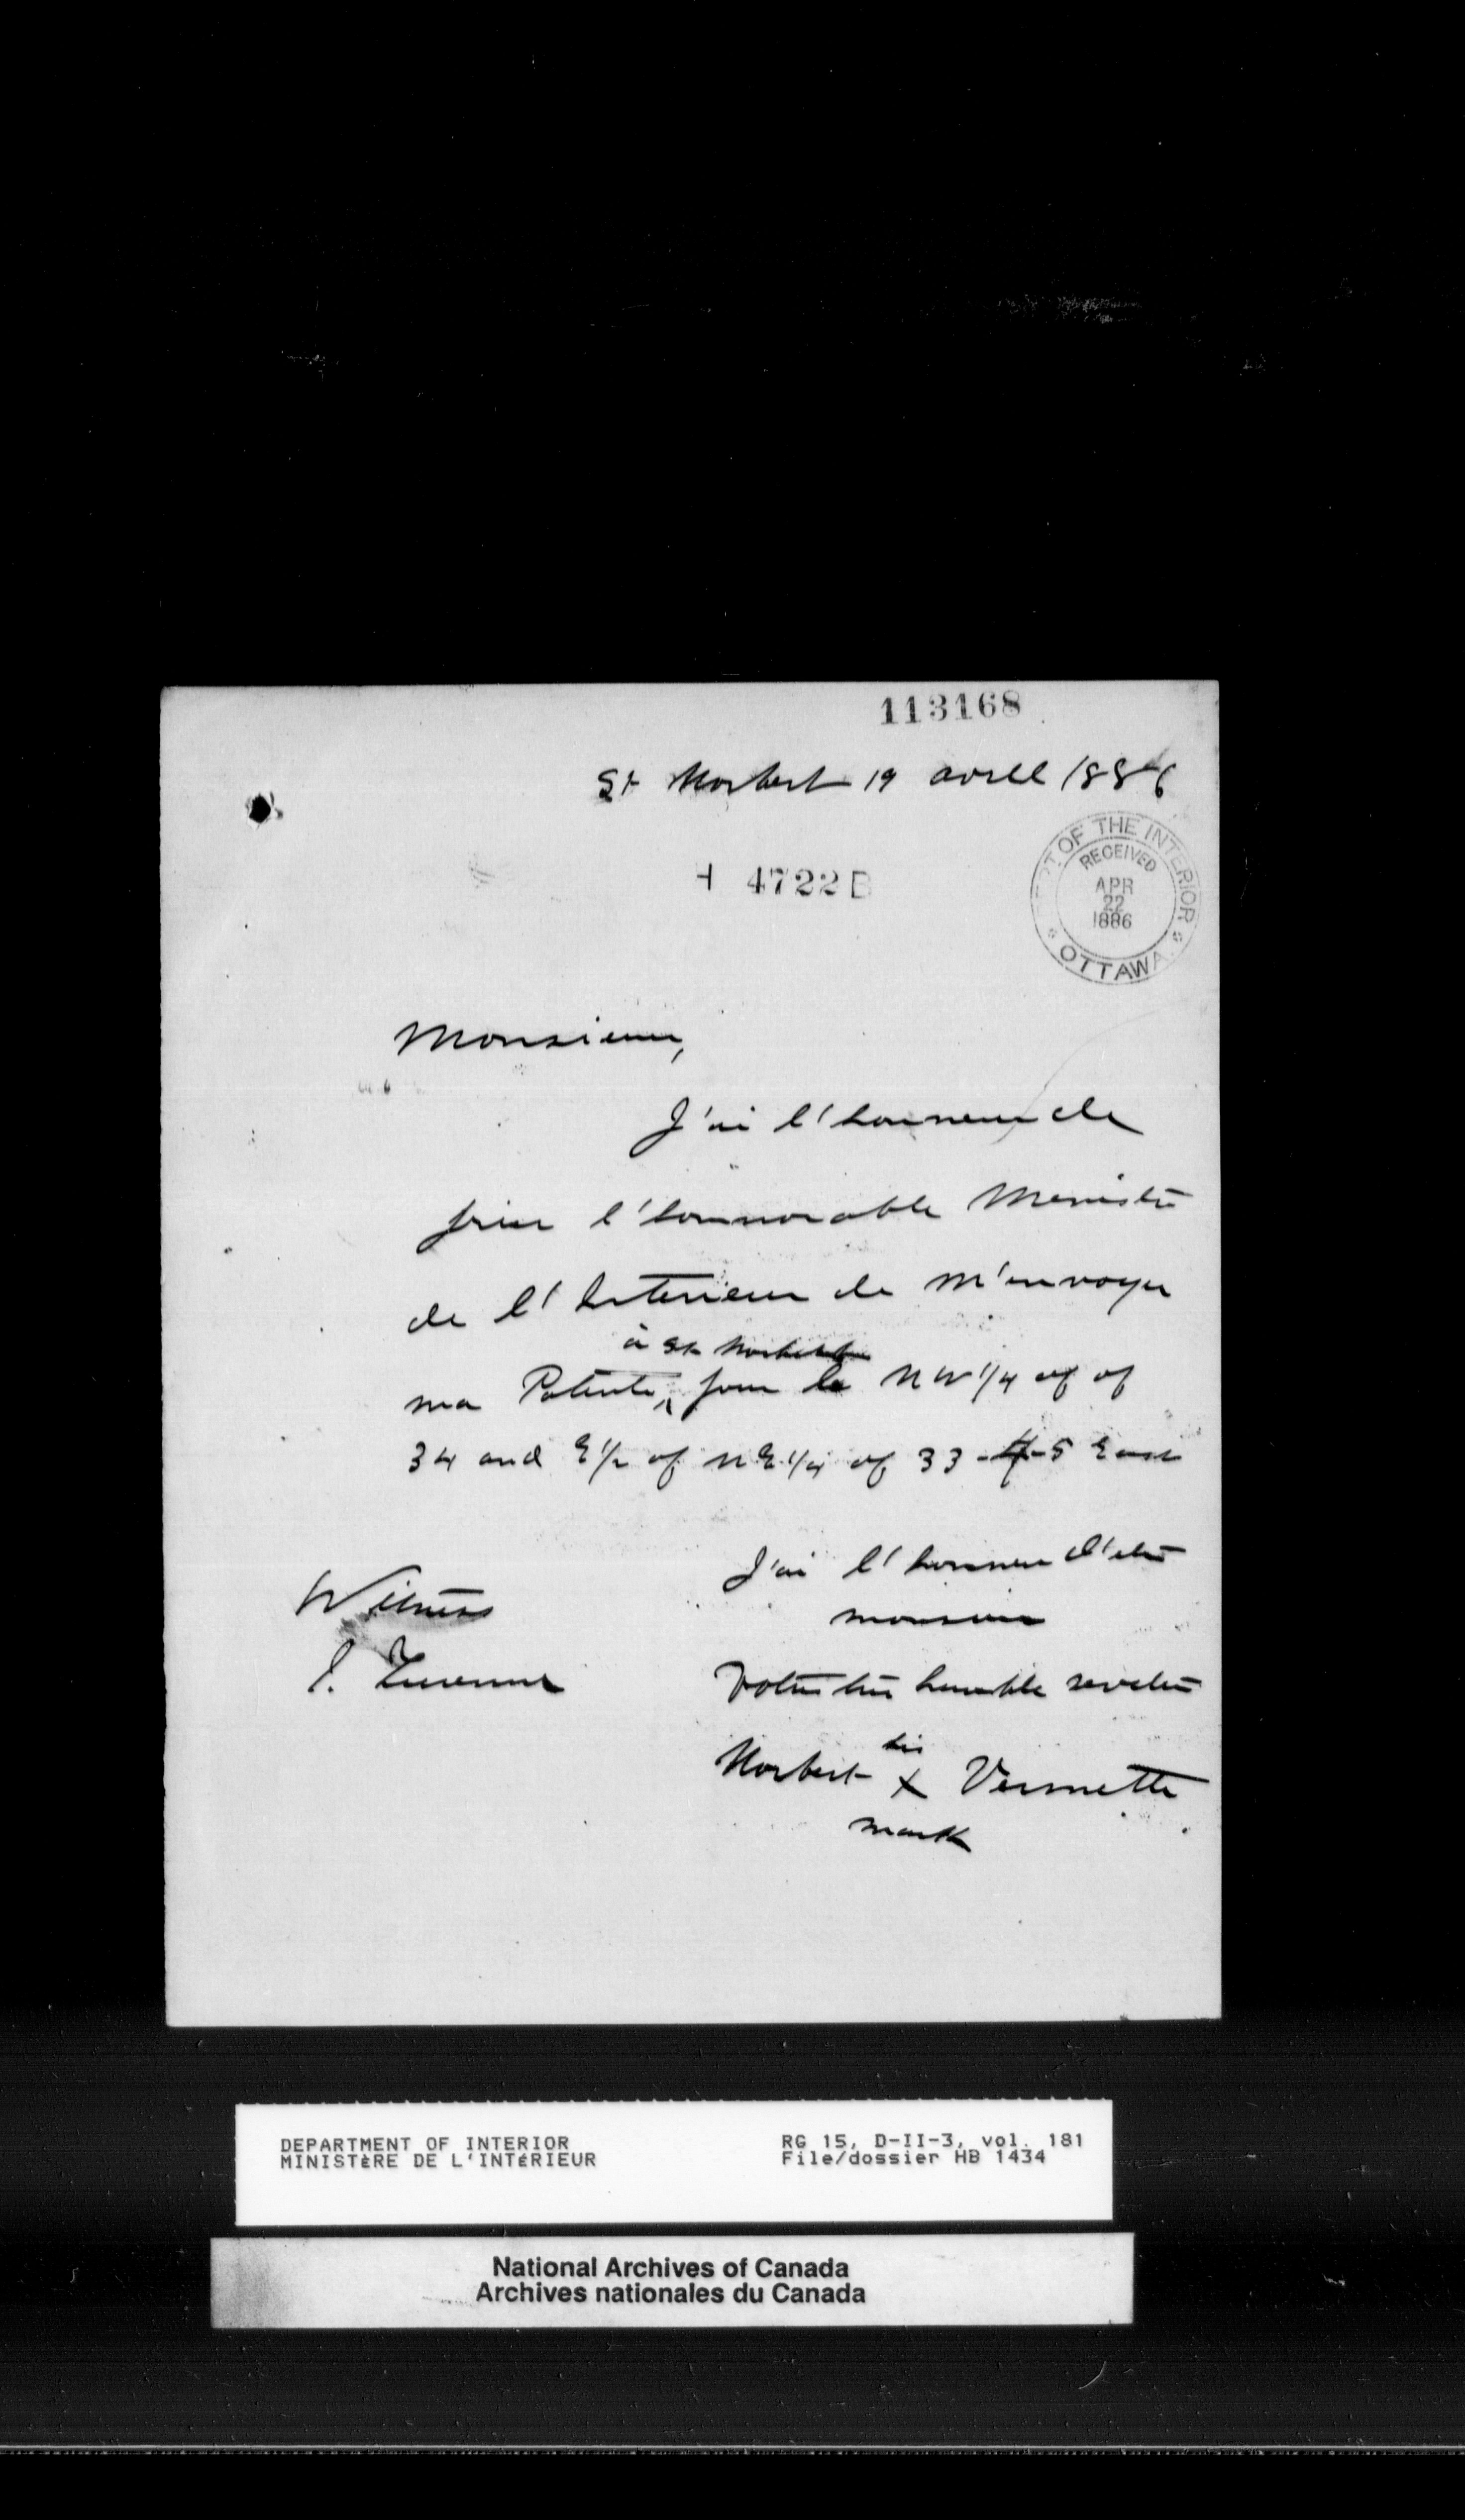 113168
St Norbert 19 avril 1886
DEPT OF THE INTERIOR
RECEIVED
APR
22
1886
OTTAWA
H 4722 B
Monsieur,
J'ai l'honneur de
prier l'honnorable Ministre
de l'Interieur de m'envoyer
à St Norbert
ma Patente, pour le NW 1/4 of of
34 and E 1/2 of NE 1/4 of 33 - 5 East
J'ai l'honneur d'etre
Witness
monsieur
Votre tres humble
his
Norbert X Vermette
mark
DEPARTMENT OF INTERIOR
MINISTÈRE DE L'INTÉRIEUR
RG 15, D-II-3, vol. 181
File/dossier HB 1434
National Archives of Canada
Archives nationales du Canada